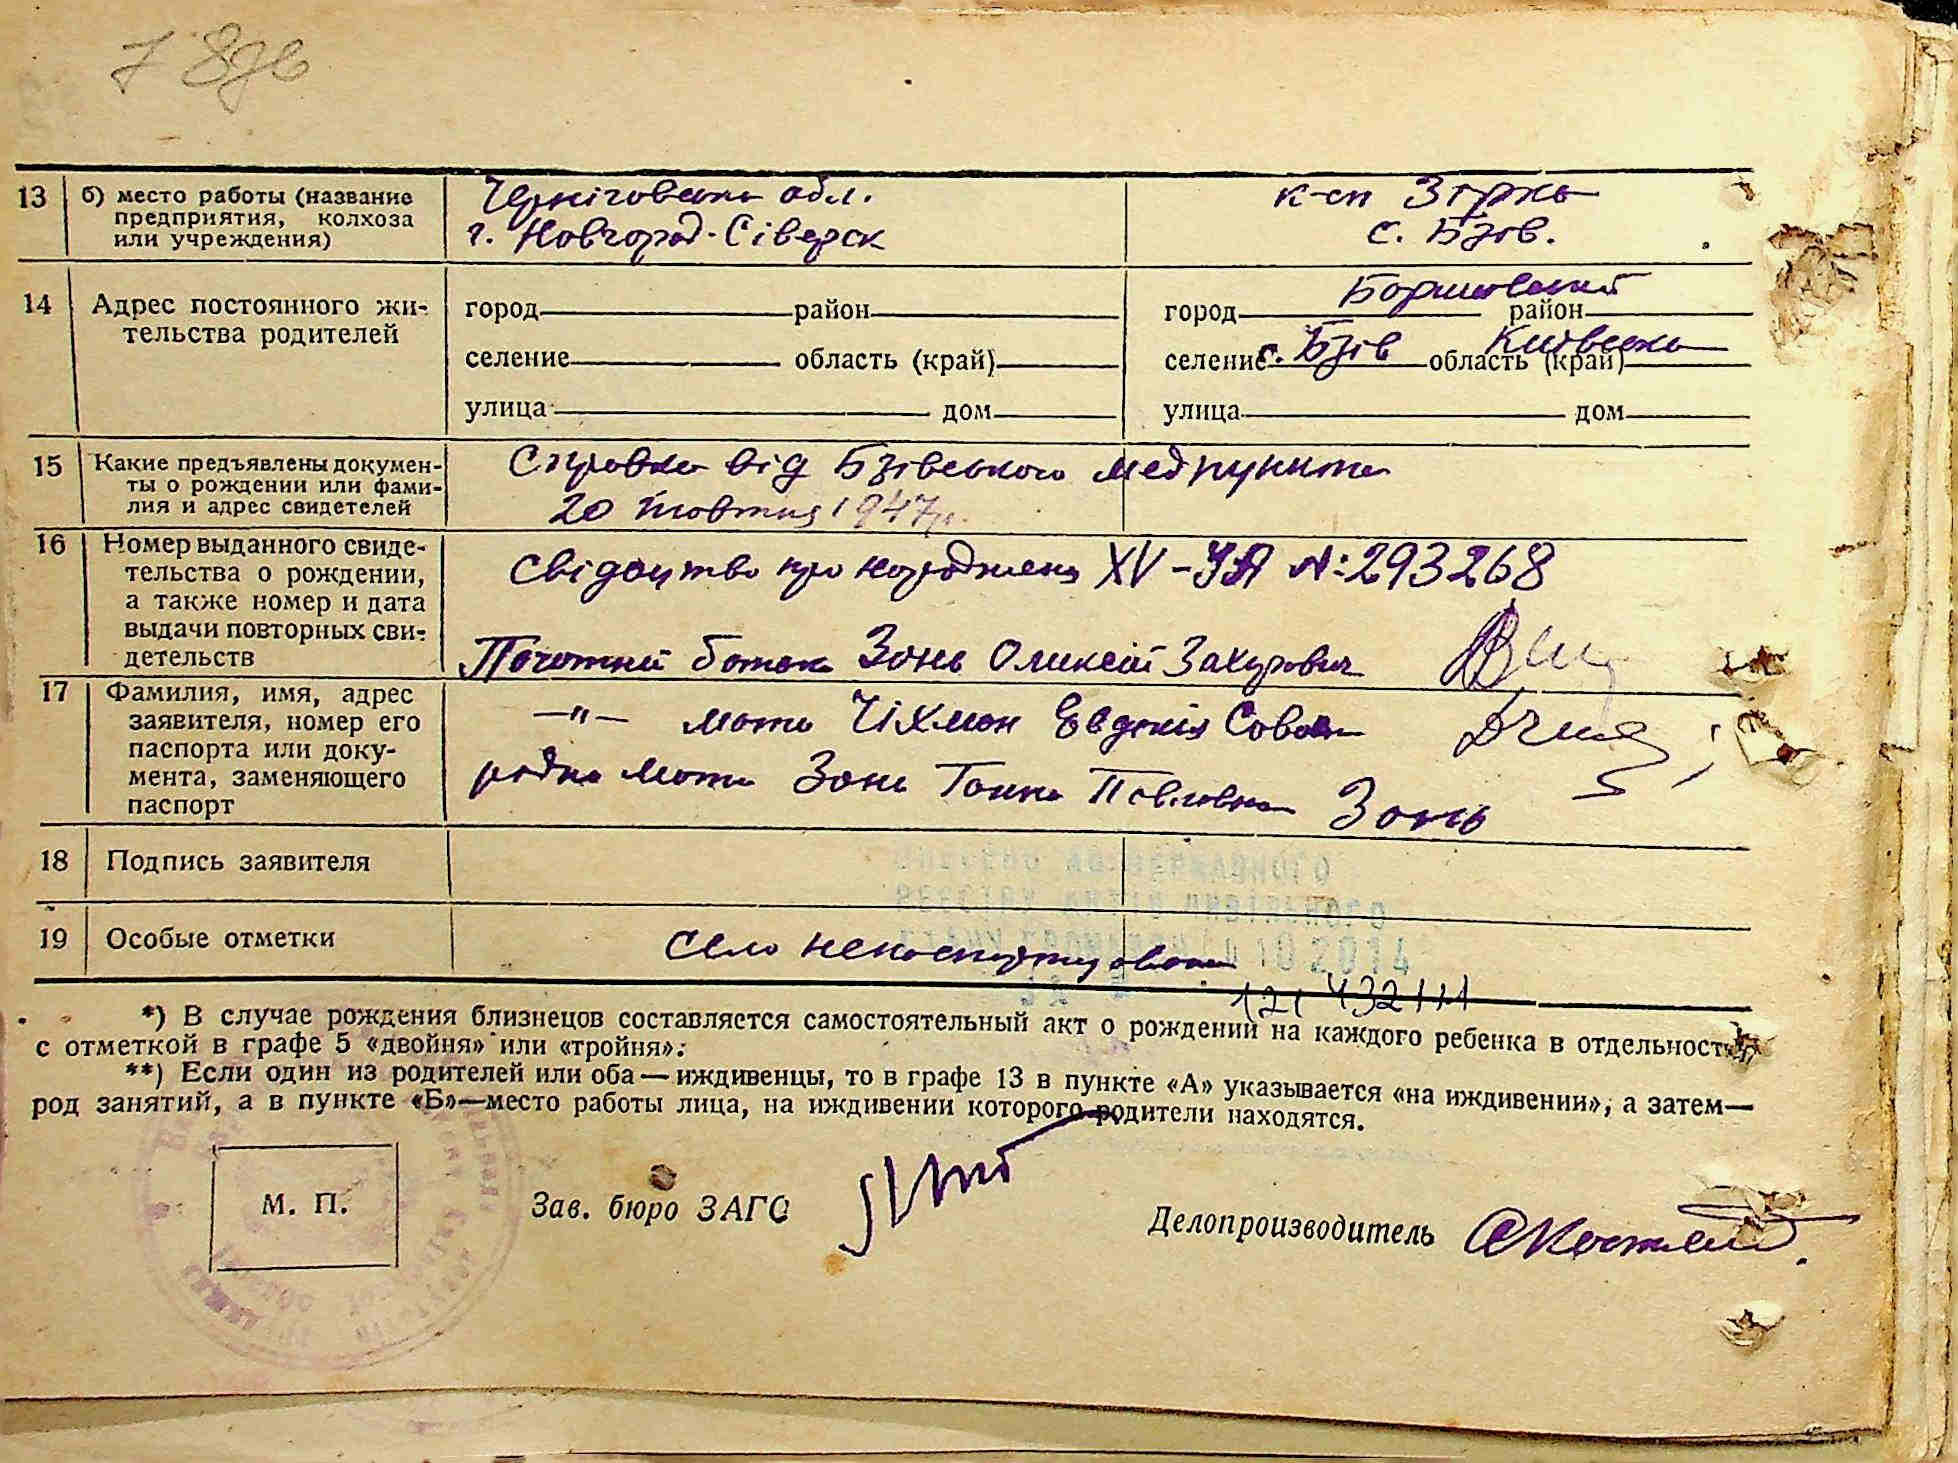 13 б) место работы (название
предприятия, колхоза
или учреждения)
Черніговська обл.
г. Новгород-Сіверск
к-сп Зірка
с. Бзів.
14 Адрес постоянного жи-
тельства родителей
город район
селение область (край)
улица дом
Боришовский
город район
селение с. Бзів область (край) Київська
улица дом
15 Какие предъявлены докумен-
ты о рождении или фами-
лия и адрес свидетелей
Справка від Бзівського медпункта
20 жовтня 1947р.
16 Номер выданного свиде-
тельства о рождении,
а также номер и дата
выдачи повторных сви-
детельств
Свідоцтво про народження XV-УЯ №:293268
Почотний батько Зонь Олексій Захарович
17 Фамилия, имя, адрес
заявителя, номер его
паспорта или доку-
мента, заменяющего
паспорт
—"— мати Чіхман Евдокія
рідна мати Зонь Ганна Павловна Зонь
18 Подпись заявителя
ВНЕСЕНО ДО ДЕРЖАВНОГО
РЕЄСТРУ АКТІВ ЦИВІЛЬНОГО
СТАНУ ГРОМАДЯН 10 2014
19 Особые отметки
село непаспортизоване
*) В случае рождения близнецов составляется самостоятельный акт о рождении на каждого ребенка в отдельности
с отметкой в графе 5 «двойня» или «тройня».
**) Если один из родителей или оба—иждивенцы, то в графе 13 в пункте «А» указывается «на иждивении», а затем—
род занятий, а в пункте «Б»—место работы лица, на иждивении которого родители находятся.
М. П.
Зав. бюро ЗАГС
Делопроизводитель